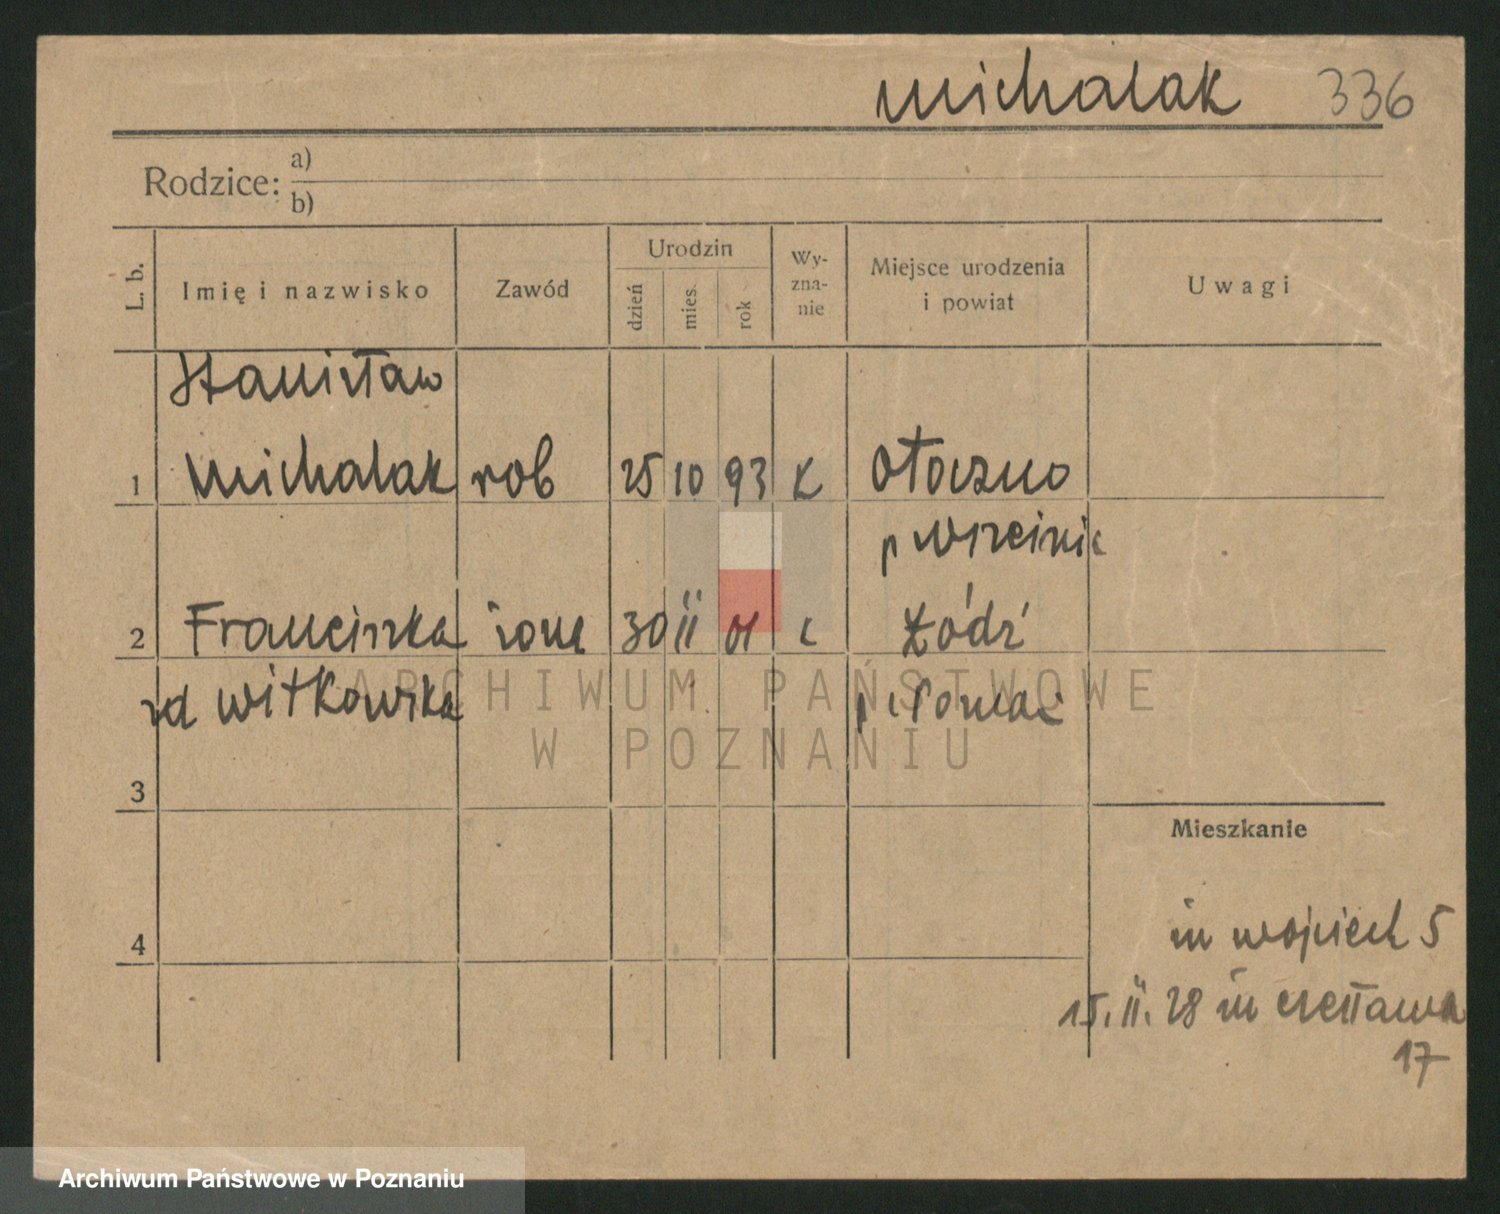 Michalak 336
Rodzice: a)
b)
L. b. Imię i nazwisko Zawód Urodzin dzień mies. rok Wy-zna-nie Miejsce urodzenia i powiat Uwagi
Stanisław
1 Michalak rob 25 10 93 K Otoczno
p Wrześnik
2 Franciszka żona 30 II 01 k Łódź
zd Witkowska p. Poznań
3
Mieszkanie
4 m Wojciech 5
15. II. 28 m Czesława
17
ARCHIWUM PAŃSTWOWE
W POZNANIU
Archiwum Państwowe w Poznaniu